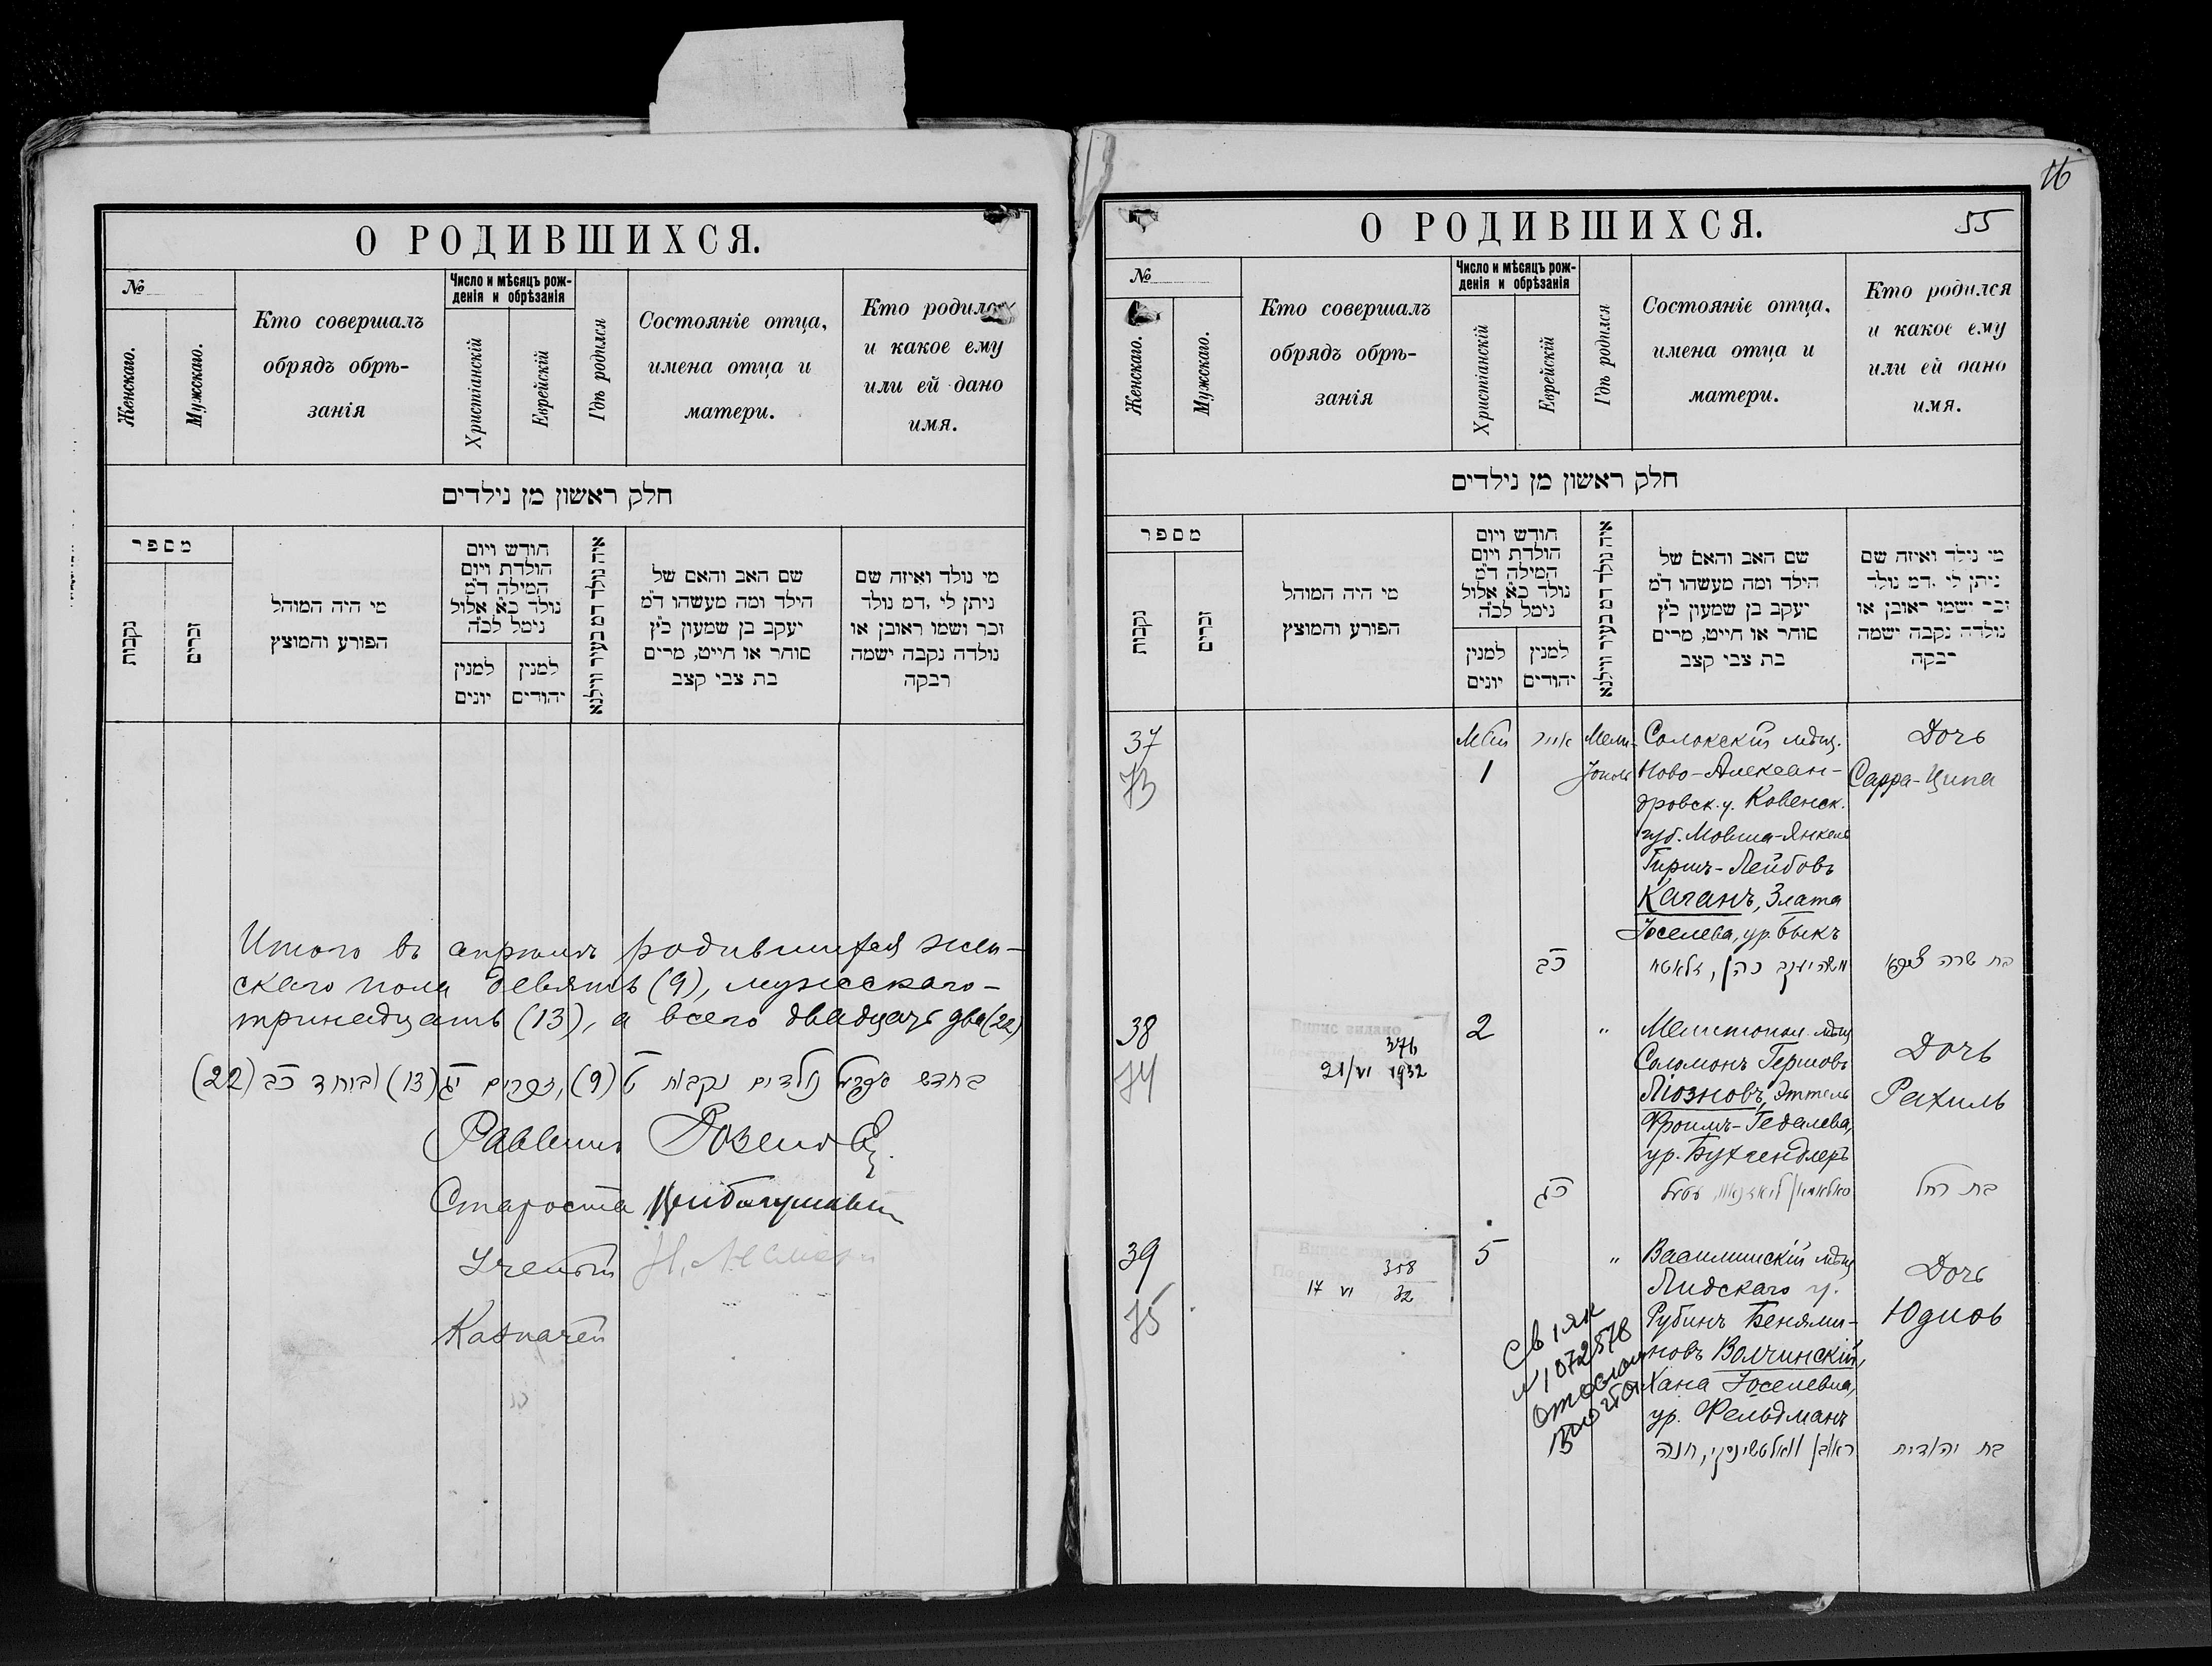 О РОДИВШИХСЯ.
№
Женскаго.
Мужскаго.
Кто совершалъ
обрядъ обрѣ-
занія
Число и мѣсяцъ рож-
денія и обрѣзанія
Христіанскій
Еврейскій
Гдѣ родился
Состояніе отца,
имена отца и
матери.
Кто родился
и какое ему
или ей дано
имя.
חלק ראשון מן נילדים
מספר
נקבות
זכרים
מי היה המוהל
הפורע והמוצץ
חודש ויום
הולדת ויום
המילה ד״מ
נולד כ״א אלול
נימל לכ״ה
למנין
יונים
למנין
יהודים
איה נולד דמ בעיר ווילנא
שם האב והאם של
הילד ומה מעשהו ד״מ
יעקב בן שמעון כ״ץ
סוחר או חייט, מרים
בת צבי קצב
מי נולד ואיזה שם
ניתן לי ,דמ נולד
זכר ושמו ראובן או
נולדה נקבה ישמה
רבקה
Итого въ апрѣлѣ родившихся жен-
скаго пола девять (9), мужескаго -
тринадцать (13), а всего двадцать два (22)
בחדש אפריל נולדים נקבות ט (9), זכרים יג (13) וביחד כב (22)
Раввинъ
Староста
Ученый
Казначей
16
О РОДИВШИХСЯ.
55
№
Женскаго.
Мужскаго.
Кто совершалъ
обрядъ обрѣ-
занія
Число и мѣсяцъ рож-
денія и обрѣзанія
Христіанскій
Еврейскій
Гдѣ родился
Состояніе отца,
имена отца и
матери.
Кто родился
и какое ему
или ей дано
имя.
חלק ראשון מן נילדים
מספר
נקבות
זכרים
מי היה המוהל
הפורע והמוצץ
חודש ויום
הולדת ויום
המילה ד״מ
נולד כ״א אלול
נימל לכ״ה
למנין
יונים
למנין
יהודים
איה נולד דמ בעיר ווילנא
שם האב והאם של
הילד ומה מעשהו ד״מ
יעקב בן שמעון כ״ץ
סוחר או חייט, מרים
בת צבי קצב
מי נולד ואיזה שם
ניתן לי ,דמ נולד
זכר ישמו ראובן או
נולדה נקבה ישמה
רבקה
37
73
Май
1
אייר
כב
Мели-
тополь
Солокскій мѣщ.
Ново-Алексан-
дровск. у. Ковенск.
губ. Мовша-Янкель
Гиршъ-Лейбовъ
Каганъ, Злата
Іоселева, ур. Быкъ
משה יעקב כהן, זלאטא
Дочь
Сарра-Ципа
בת שרה צפא
38
74
Випис видано
376
21/VI 1932
2
כג
"
Мелитопол. мѣщ
Соломонъ Гершовъ
Ліозновъ, Эттель
Фроимъ-Гедалева,
ур. Бухгендлеръ
Дочь
Рахиль
בת רחל
39
75
Випис видано
358
17 VI 32
5
"
Василишскій мѣщ
Лидскаго у.
Рубинъ Беньями-
новъ Волчинскій,
Хана Іоселевна,
ур. Фельдманъ
ראובן וואלטשינסקי, חנה
Дочь
Юдиѳь
בת יהודית